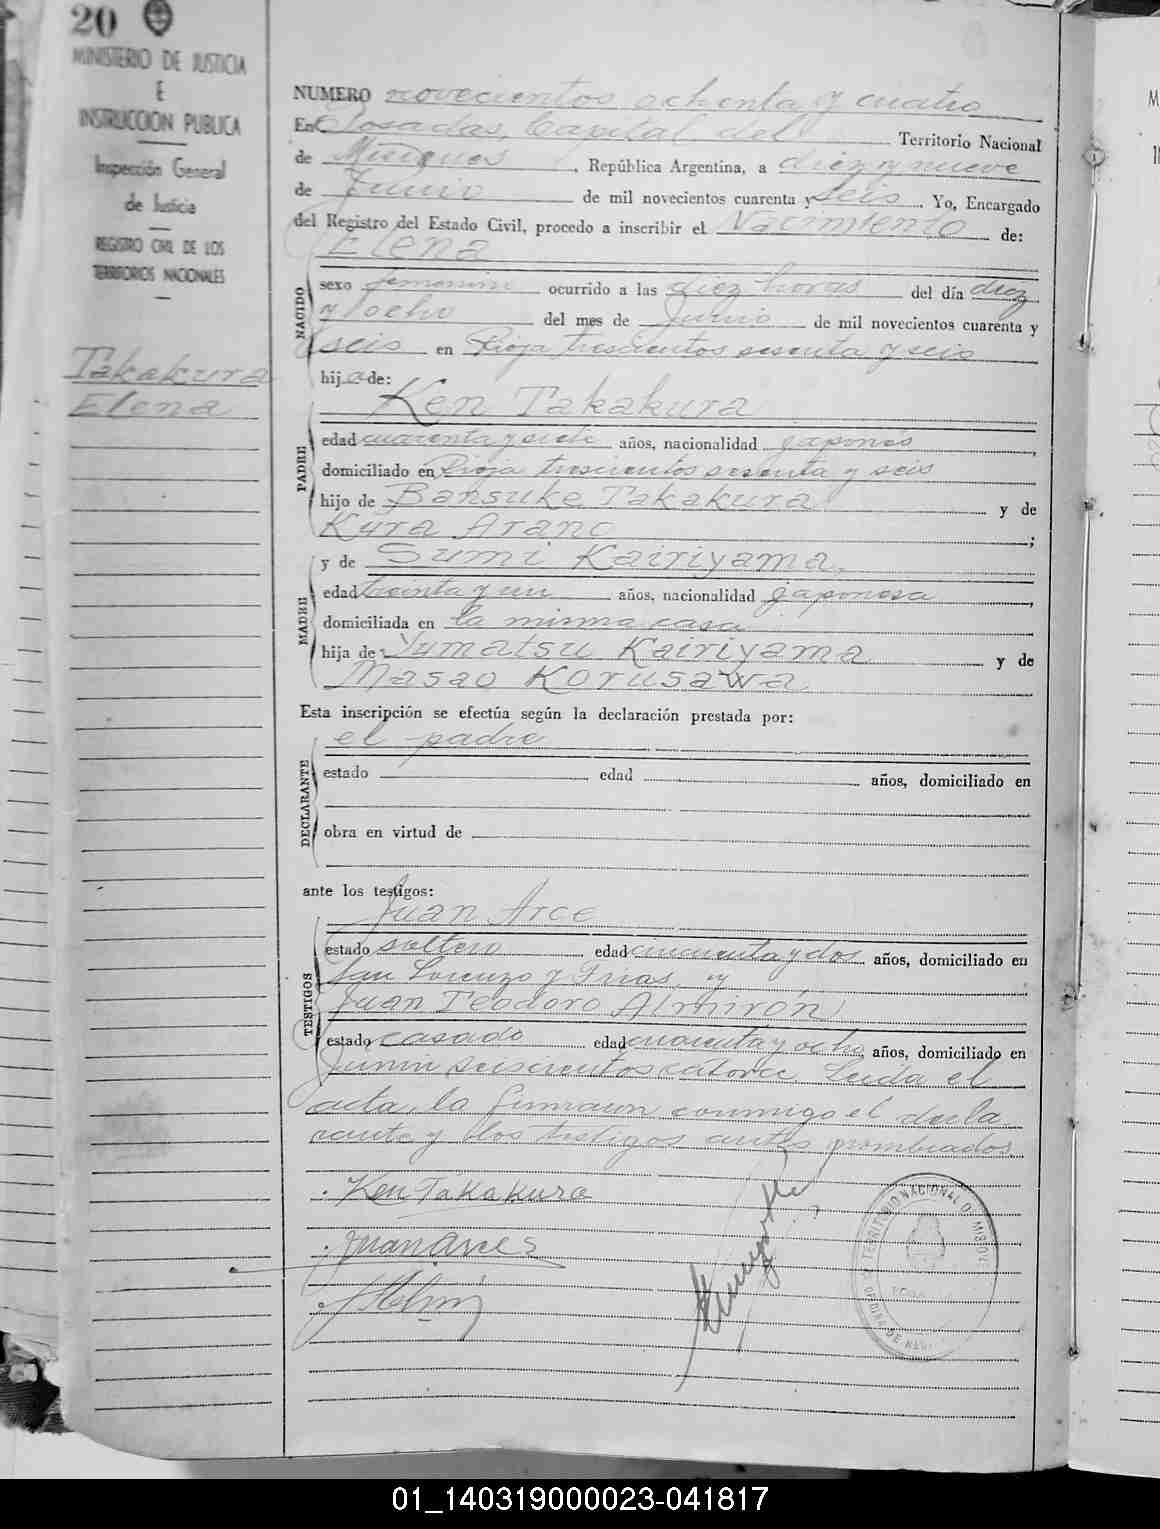 20
MINISTERIO DE JUSTICIA
E
INSTRUCCIÓN PUBLICA
Inspección General
de Justicia
REGISTRO CIVIL DE LOS
TERRITORIOS NACIONALES
Takakura
Elena
NUMERO novecientos ochenta y cuatro
En Posadas, Capital del Territorio Nacional
de Misiones, República Argentina, a diez y nueve
de Junio de mil novecientos cuarenta y seis. Yo, Encargado
del Registro del Estado Civil, procedo a inscribir el Nacimiento de:
Elena
NACIDO
sexo femenino ocurrido a las diez horas del día diez
y ocho del mes de Junio de mil novecientos cuarenta y
seis en Rioja trescientos sesenta y seis
hija de:
Ken Takakura
PADRE
edad cuarenta y siete años, nacionalidad japonés,
domiciliado en Rioja trescientos sesenta y seis
hijo de Bansuke Takakura y de
Kura Arano;
y de Sumi Kairiyama,
MADRE
edad treinta y un años, nacionalidad japonesa,
domiciliada en la misma casa
hija de Yumatsu Kairiyama y de
Masao Korusawa
Esta inscripción se efectúa según la declaración prestada por:
el padre
DECLARANTE
estado edad años, domiciliado en
obra en virtud de
ante los testigos:
Juan Arce
TESTIGOS
estado soltero edad cincuenta y dos años, domiciliado en
San Lorenzo y Frias, y
Juan Teodoro Almirón
estado casado edad cuarenta y ocho, años, domiciliado en
Junin seiscientos catorce. Leida el
acta, la firmaron conmigo el decla
rante y los testigos antes nombrados
Ken Takakura
Juan Arce
TERRITORIO NACIONAL DE MISIONES
01_140319000023-041817